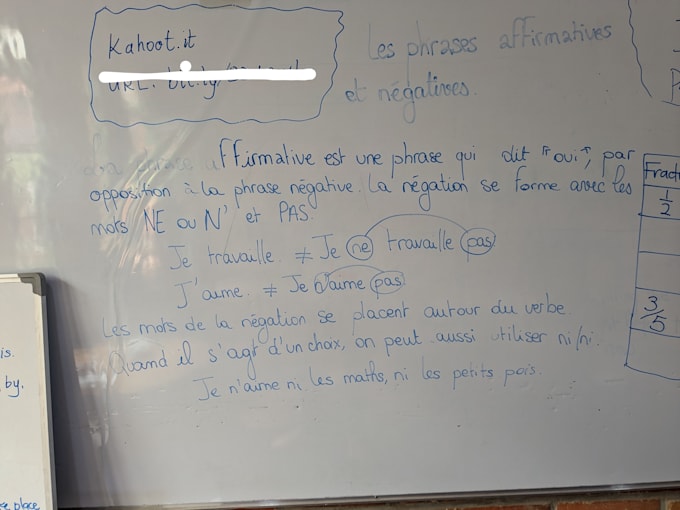 Kahoot.it
Les phrases affirmatives
et négatives.
La phrase affirmative est une phrase qui dit "oui", par
opposition à la phrase négative. La négation se forme avec les
mots NE OU N' et PAS.
Je travaille. ≠ Je ne travaille pas
J'aime. ≠ Je n'aime pas
Les mots de la négation se placent autour du verbe.
Quand il s'agit d'un choix, on peut aussi utiliser ni/ni.
Je n'aime ni les maths, ni les petits pois.
1/2
3/5
is.
by.
place